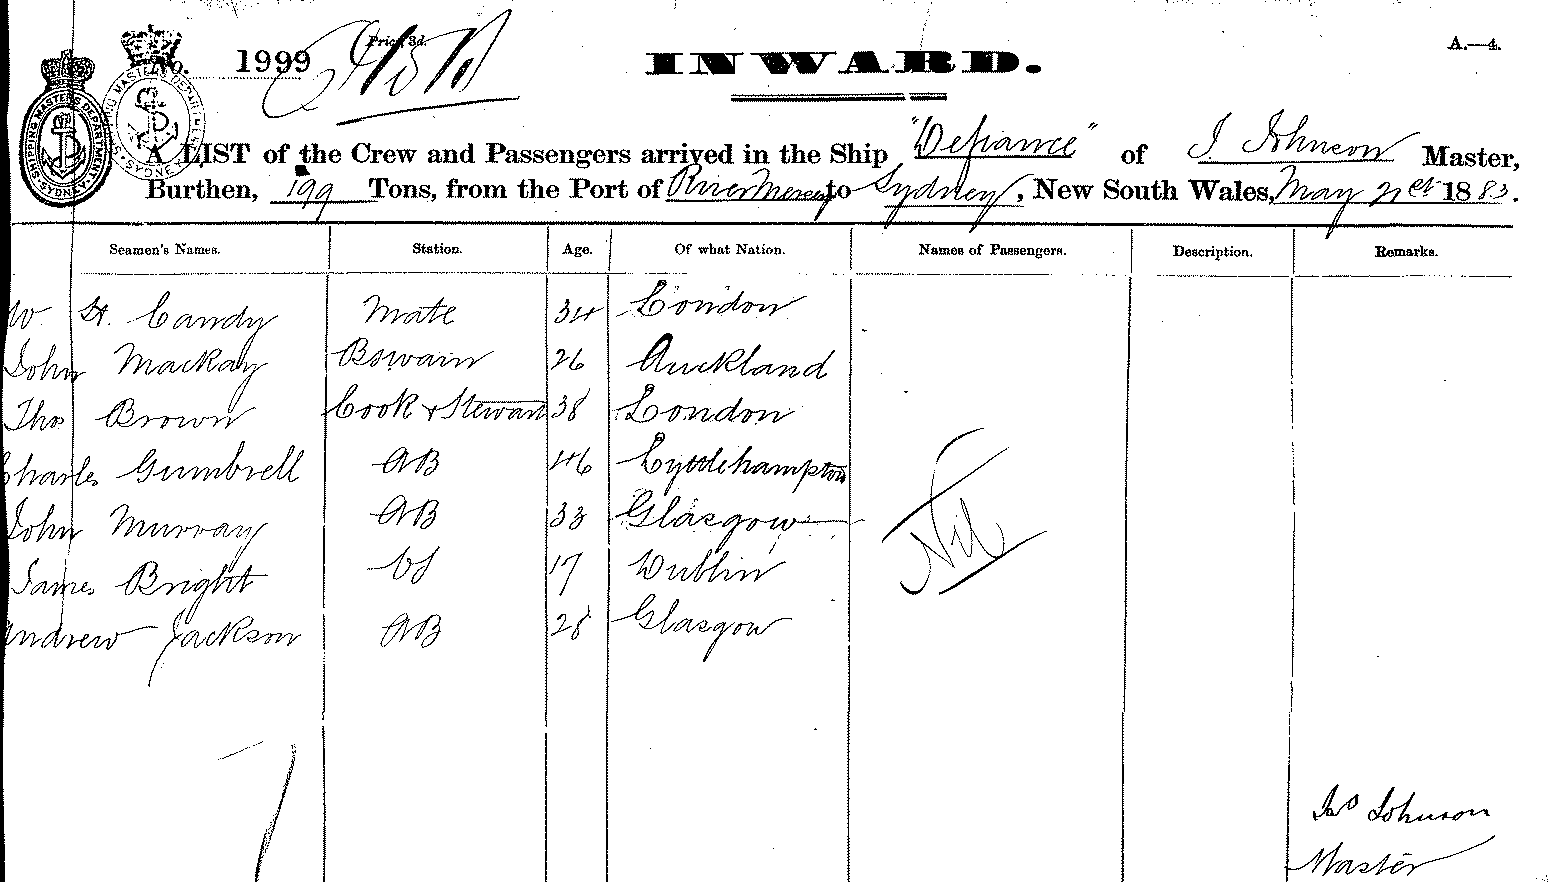 No. 1999
Price 3d.
INWARD.
A.—4.
SHIPPING MASTER'S DEPARTMENT
SYDNEY
A LIST of the Crew and Passengers arrived in the Ship "Defiance" of J. Johnson Master,
Burthen, 199 Tons, from the Port of River Mersey to Sydney, New South Wales, May 21st 1883.
Seamen's Names. Station. Age. Of what Nation. Names of Passengers. Description. Remarks.
W. H. Candy Mate 34 London
John Mackay Bswain 26 Auckland
Thos Brown Cook & Steward 38 London
Charles Gumbrell AB 46 Lyttlehampton
John Murray AB 33 Glasgow
James Bright OS 17 Dublin
Andrew Jackson AB 28 Glasgow
Nil
7
Jno Johnson
Master